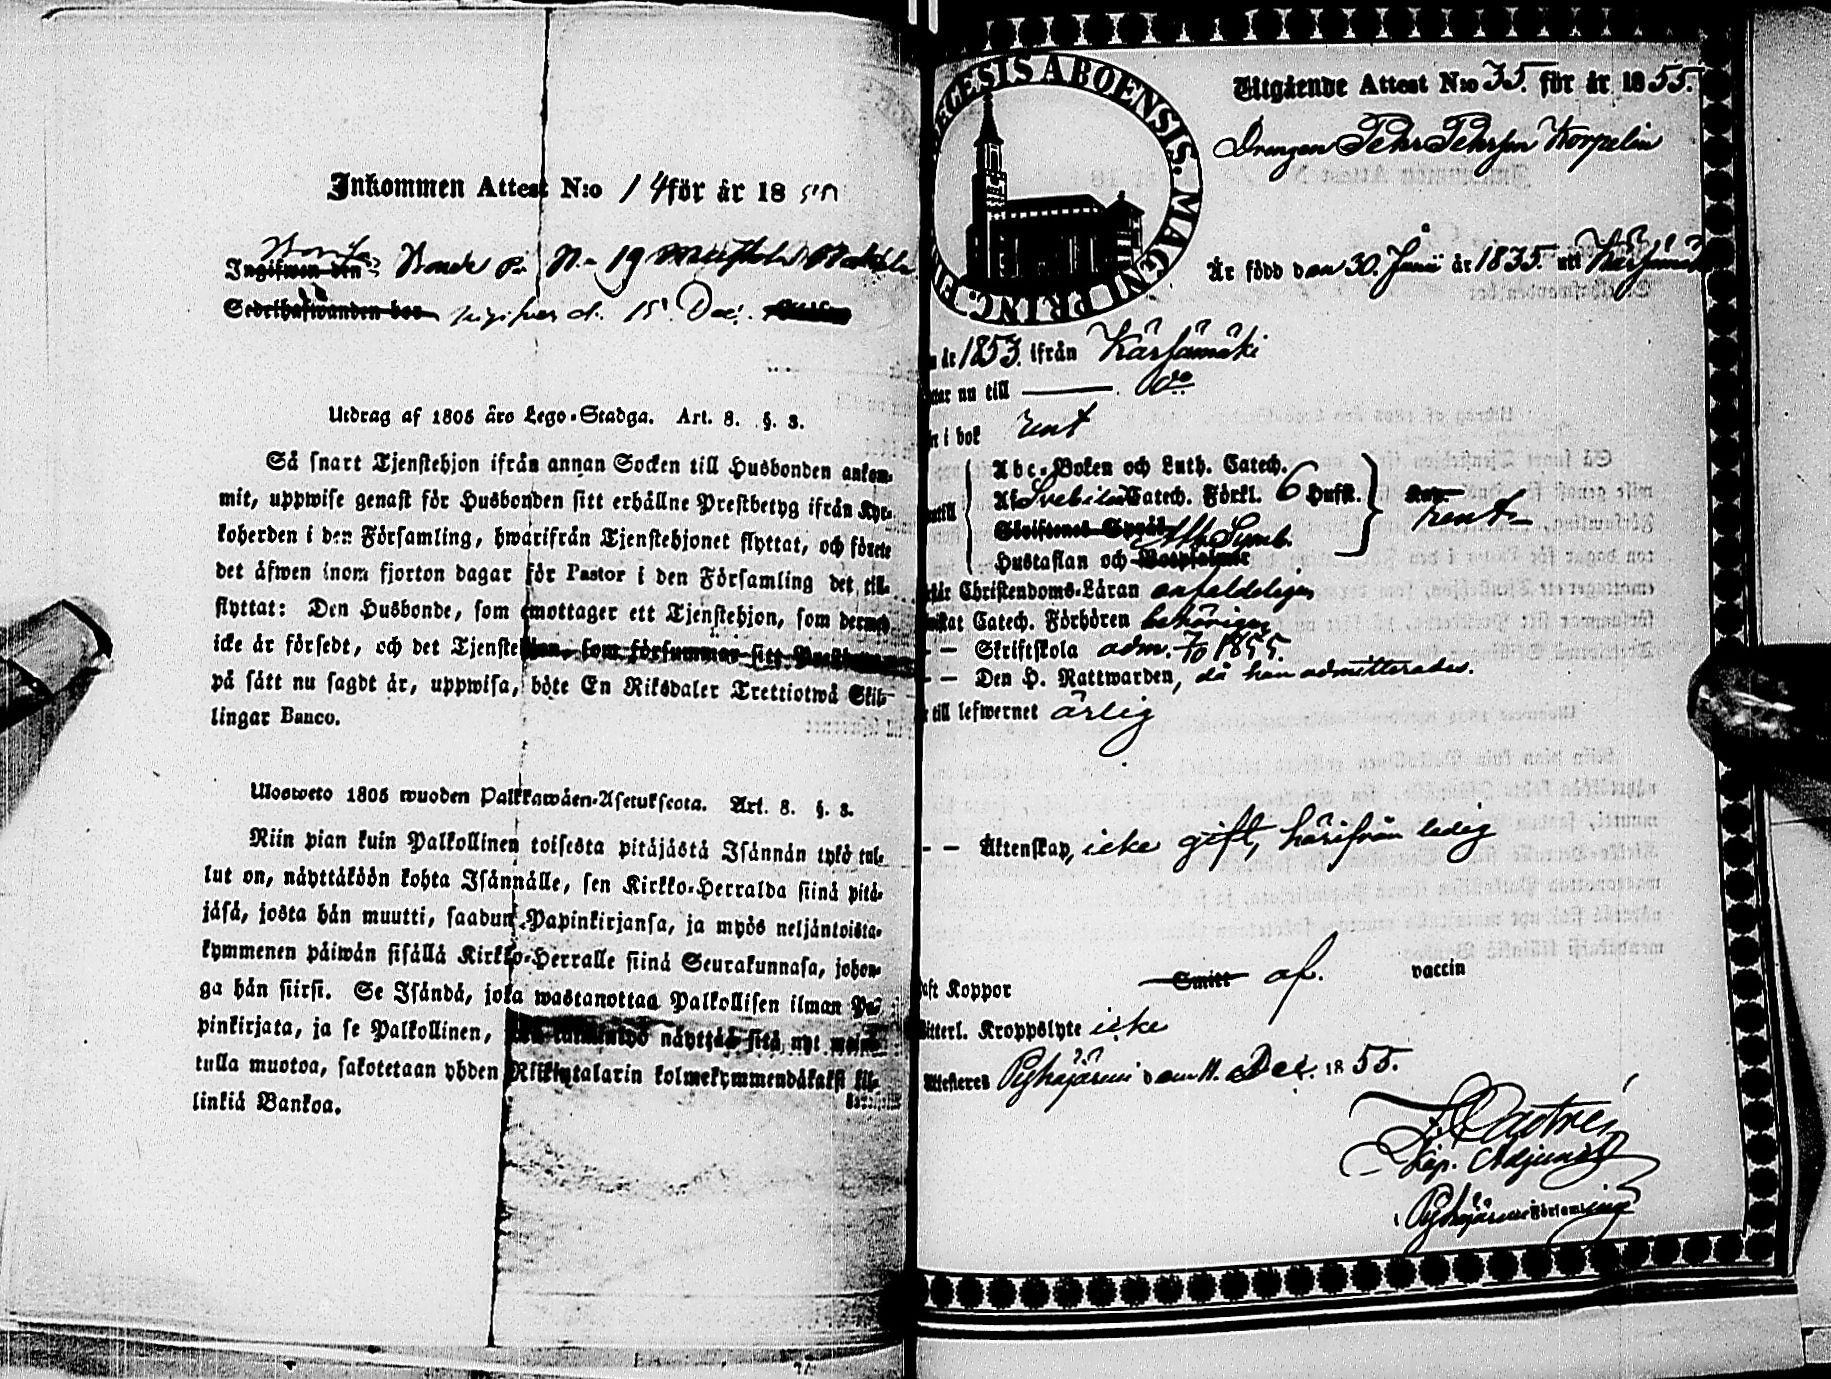 Inkommen Attest N:o 14 för år 18
Ingifwen den Bonde på N:o 19
Sedelhafwanden bor ingifven d. 15 Dec.
Utdrag af 1805 års Lego-Stadga. Art. 8. §. 3.
Så snart Tjenstehjon ifrån annan Socken till Husbonden ankom-
mit, uppwise genast för Husbonden sitt erhållne Prestbetyg ifrån Kyr-
koherden i den Församling, hwarifrån Tjenstehjonet flyttat, och förete
det äfwen inom fjorton dagar för Pastor i den Församling det till-
flyttat: Den Husbonde, som emottager ett Tjenstehjon, som dermed
icke är försedt, och det Tjenstehjon, som försummar sitt
på sätt nu sagdt är, uppwisa, böte En Riksdaler Trettiotwå Skil-
lingar Banco.
Ulosweto 1805 wuoden Palkkawäen-Asetuksesta. Art. 8. §. 3.
Niin pian kuin Palkollinen toisesta pitäjästä Isännän tykö tul-
lut on, näyttäköön kohta Isännälle, sen Kirkko-Herralda siinä pitä-
jäsä, josta hän muutti, saadun Papinkirjansa, ja myös neljäntoista-
kymmenen päiwän sisällä Kirkko-Herralle siinä Seurakunnasa, johon-
ga hän siirsi. Se Isändä, joka wastanottaa Palkollisen ilman Pa-
pinkirjata, ja se Palkollinen, näyttää sitä nyt
tulla muotoa, sakotetaan yhden Riikintalarin kolmekymmendäkaksi kil-
linkiä Bankoa.
ECESIS ABOENSIS. MAGNI PRINC.
Utgående Attest N:o 35. för år 1855.
Drengen Pehr Pehrson Korpelin
Är född den 30. Junii år 1835. uti Kärsämäki
år 1853. ifrån Kärsämäki
nu till do
i bok rent
Abc-Boken och Luth. Catech.
Af Svebilii Catech. Förkl. 6 Hufst.
rent
Ath. Symb.
Hustaflan och
Christendoms-Läran enfaldeligen
Catech. Förhören behörigen
- - Skriftskola adm. 7/10 1855.
- - Den H. Nattwarden, då han admitterades.
till lefwernet ärlig
- - Äktenskap, icke gift, härifrån ledig
Koppor Smitt af. vaccin
Kroppslyte icke
Attesteres Pyhäjärvi den 11. Dec. 1855.
Castrén
Kap. Adjunct
i Pyhäjärvi Församling